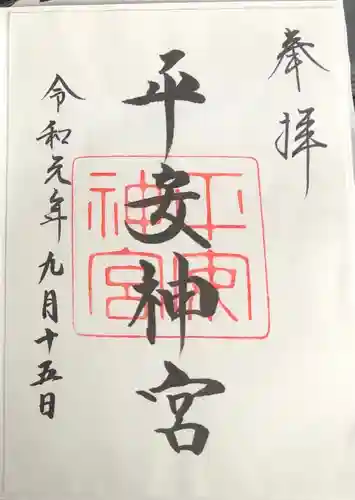 奉拝
平安神宮
平安
神宮
令和元年九月十五日